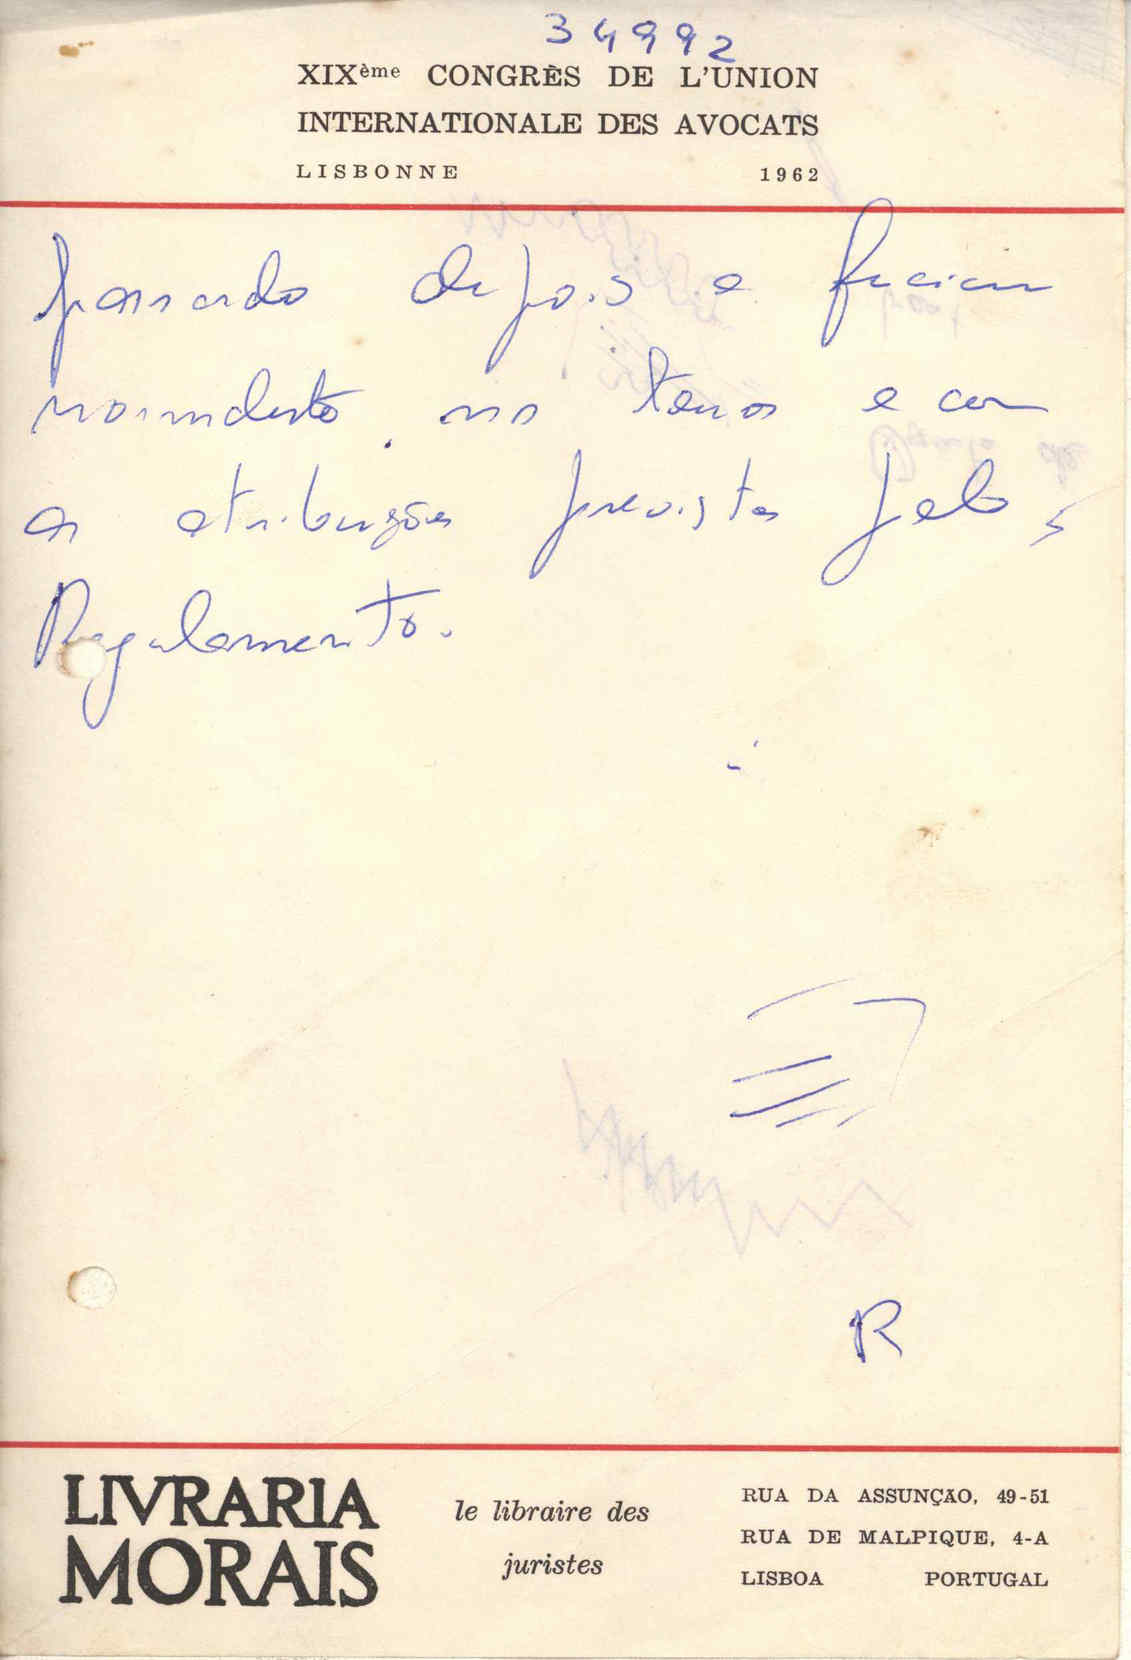 34992
XIXème CONGRÈS DE L'UNION
INTERNATIONALE DES AVOCATS
LISBONNE 1962
passando depois a funcionar
normalmente, nos termos e com
as atribuições previstas pelo
Regulamento.
R
LIVRARIA
MORAIS
le libraire des
juristes
RUA DA ASSUNÇÃO, 49-51
RUA DE MALPIQUE, 4-A
LISBOA PORTUGAL